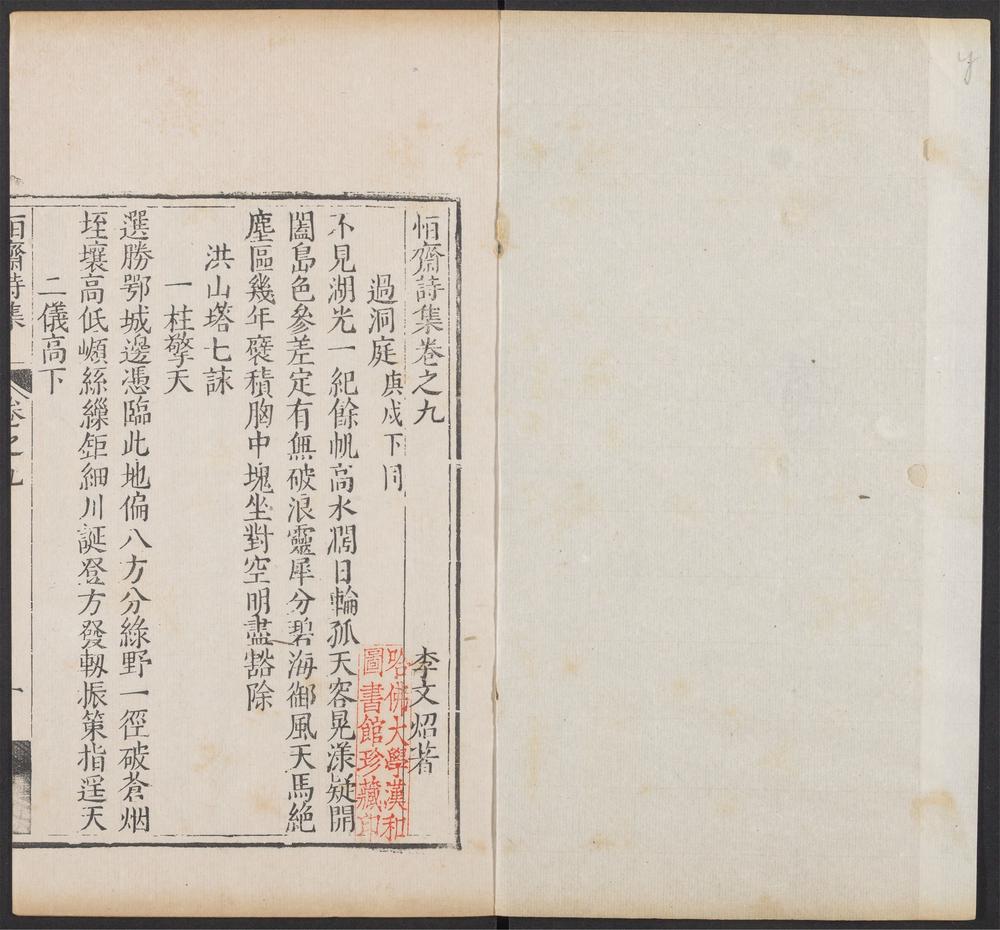 恒齋詩集卷之九 李文炤著
過洞庭 庚戌下同
不見湖光一紀餘帆高水濶日輪孤天容晃漾疑開
闔島色參差定有無破浪靈犀分碧海御風天馬絶
塵區幾年襞積胸中塊坐對空明盡豁除
洪山塔七詠
一柱擎天
選勝鄂城邊憑臨此地偏八方分綠野一徑破蒼烟
垤壤高低巔絲纙鉅細川誕登方發軔振策指遥天
二儀高下
恒齋詩集 卷之九 一
哈佛大學漢和
圖書館珍藏印